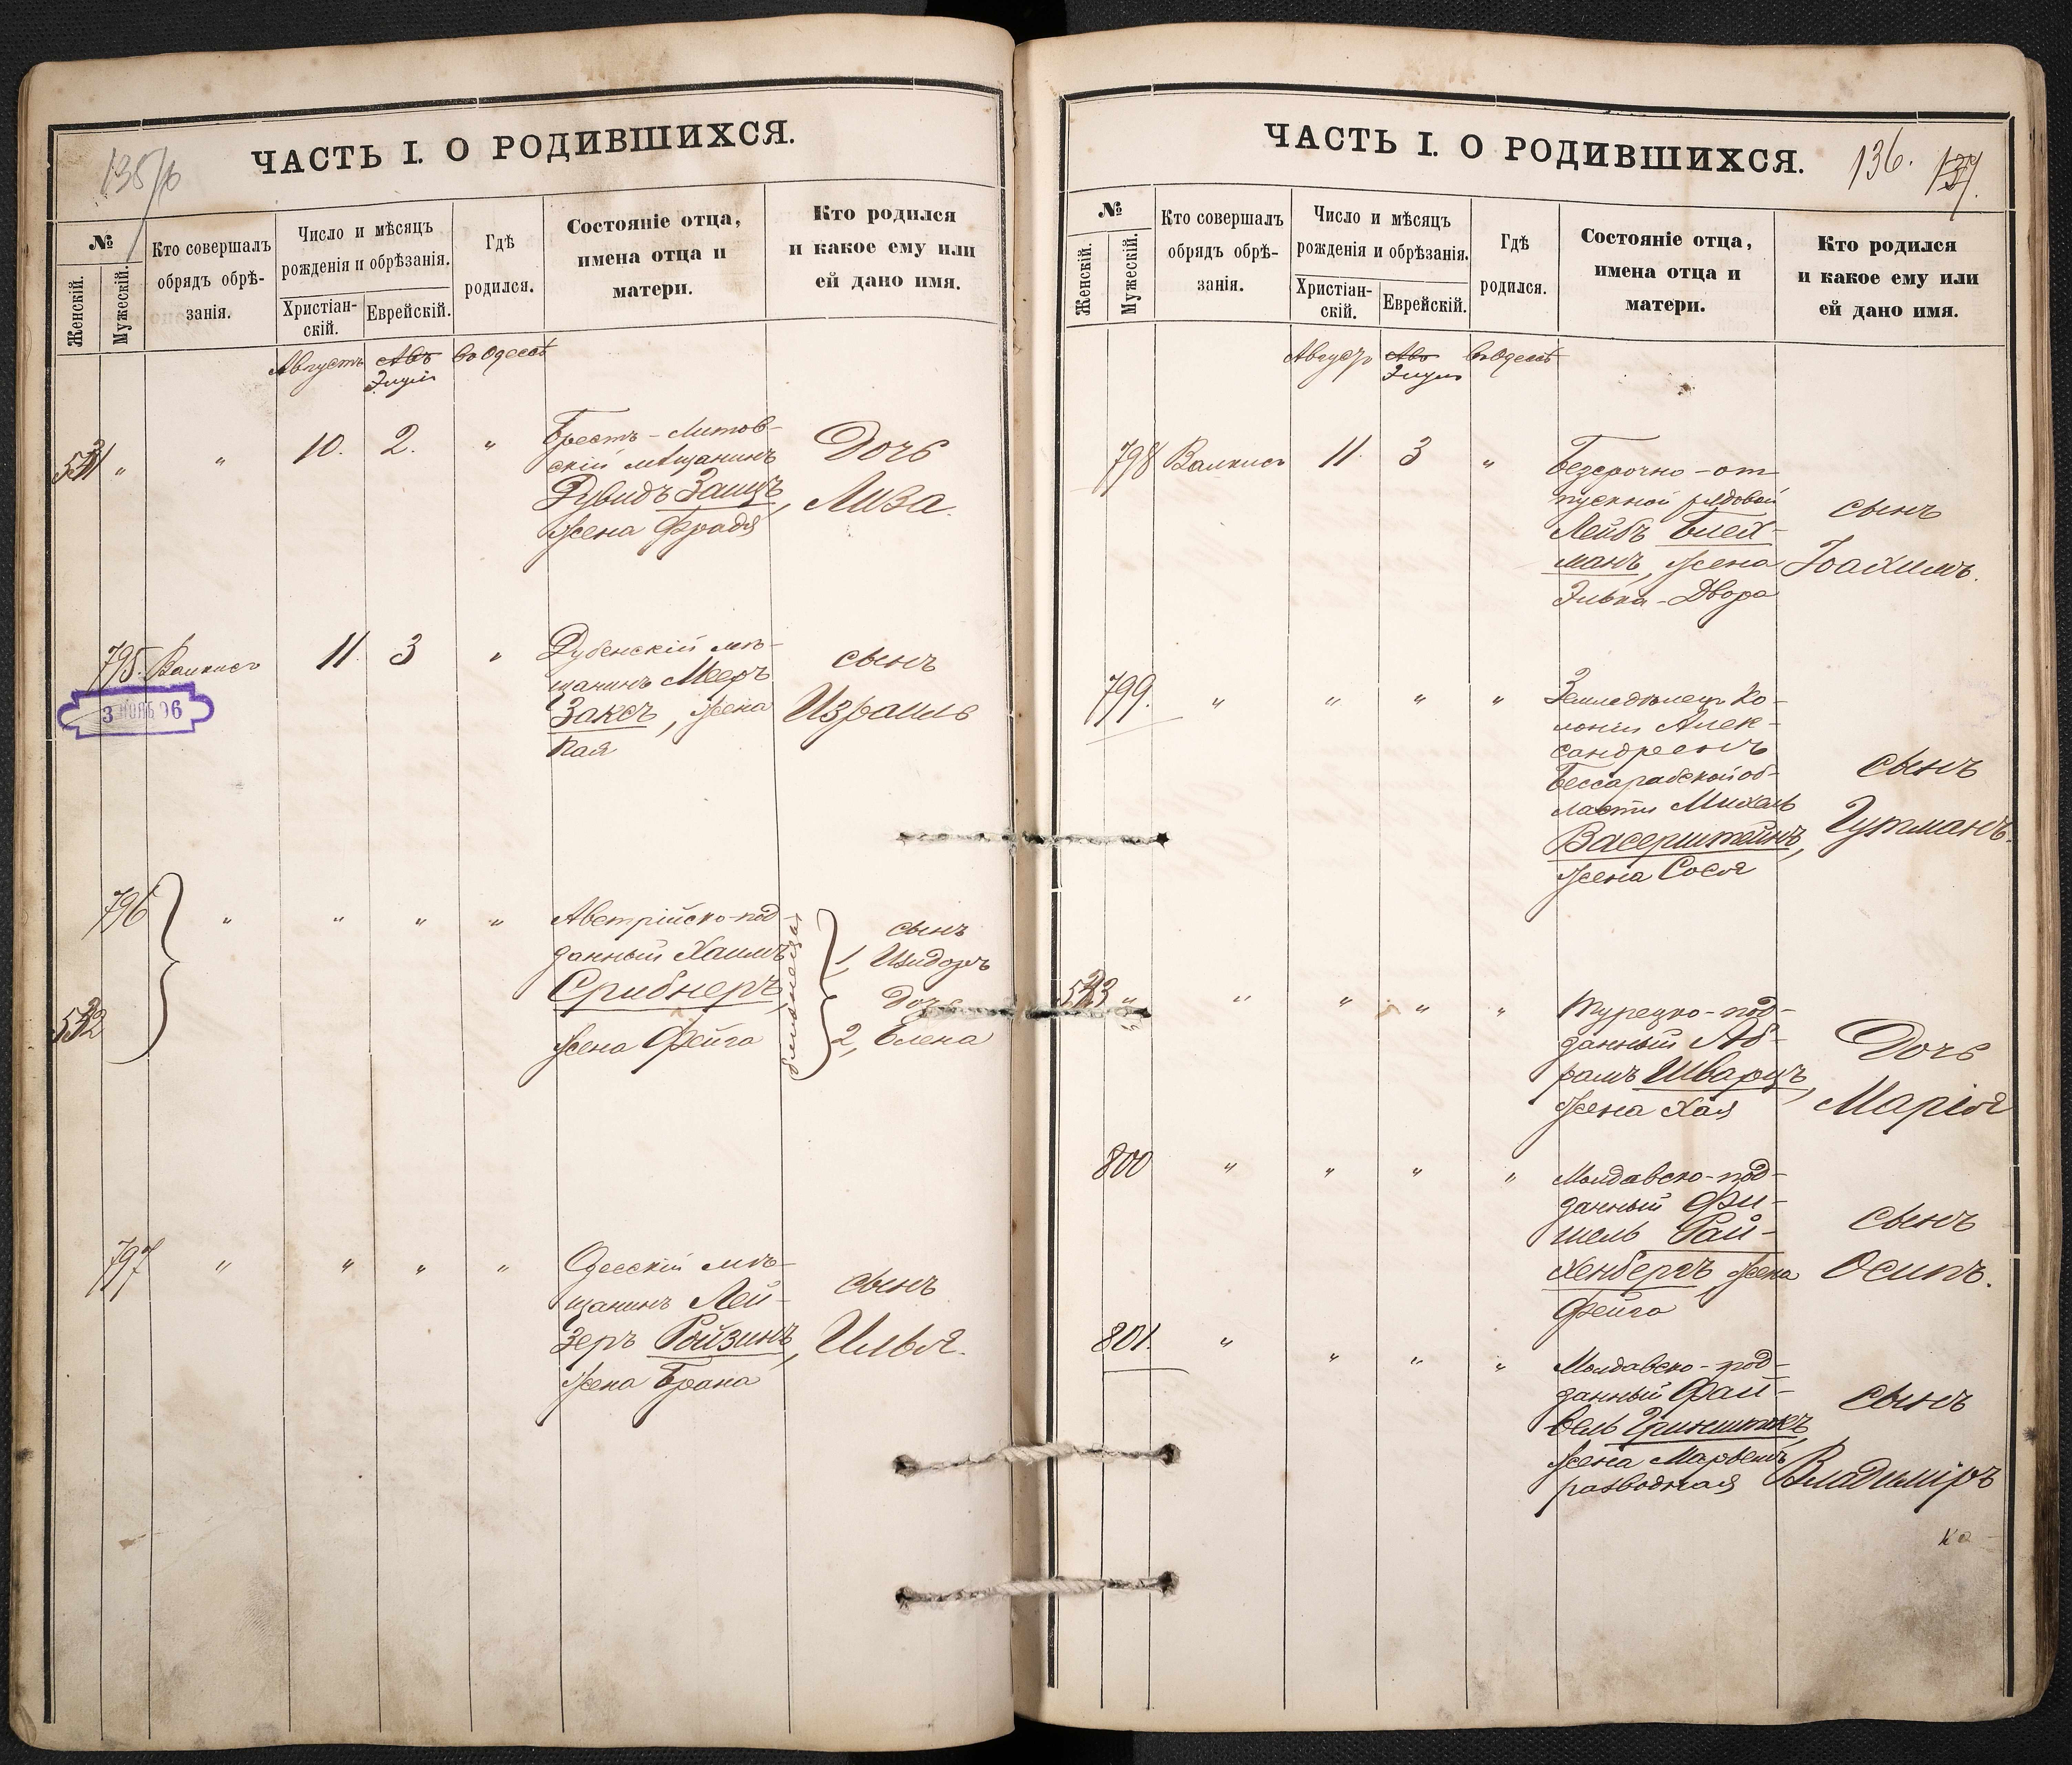 135/б
ЧАСТЬ I. О РОДИВШИХСЯ.
№
Женскій.
Мужескій.
Кто совершалъ
обрядъ обрѣ-
занія.
Число и мѣсяцъ
рожденія и обрѣзанія.
Христіан-
скій.
Еврейскій.
Гдѣ
родился.
Состояніе отца,
имена отца и
матери.
Кто родился
и какое ему или
ей дано имя.
Августъ Авъ въ Одессѣ
Элулъ
531 " " 10. 2. "
Брестъ-Литов-
скій мѣщанинъ
Рувидъ Заицъ,
жена Фрадя
Дочь
Лиза.
795. Валкисъ 11 3 "
Дубенскій мѣ-
щанинъ Мееръ
Заксъ, жена
Хая
сынъ
Израиль
796 " " " "
532
Австрійско-под-
данный Хаимъ
Срибнеръ,
жена Фейга
близнецы
сынъ
1, Изидоръ
Дочь
2, Елена
797 " " " "
Одесскій мѣ-
щанинъ Лей-
зеръ Ройзинъ,
жена Брана
сынъ
Илья.
ЧАСТЬ I. О РОДИВШИХСЯ.
136. 137.
№
Женскій.
Мужескій.
Кто совершалъ
обрядъ обрѣ-
занія.
Число и мѣсяцъ
рожденія и обрѣзанія.
Христіан-
скій.
Еврейскій.
Гдѣ
родился.
Состояніе отца,
имена отца и
матери.
Кто родился
и какое ему или
ей дано имя.
Августъ Авъ въ Одессѣ
Элулъ
798 Валкисъ 11. 3 "
Безсрочно-от-
пускной рядовой
Лейбъ Блей-
манъ, жена
Элька-Двора
сынъ
Іоахимъ.
799. " " " "
Земледѣлецъ ко-
лоніи Алек-
сандренъ
Бессарабской об-
ласти Михель
Васерштейнъ,
жена Сося
сынъ
Гутманъ.
533 " " " " "
Турецко-под-
данный Аб-
рамъ Шварцъ,
жена Хая
Дочь
Марія
800 " " " "
Молдавско-под-
данный Фи-
шель Рай-
хенбергъ, жена
Фейга
сынъ
Осипъ.
801. " " " "
Молдавско-под-
данный Фай-
вель Гринштокъ,
жена
разводная
сынъ
Владиміръ